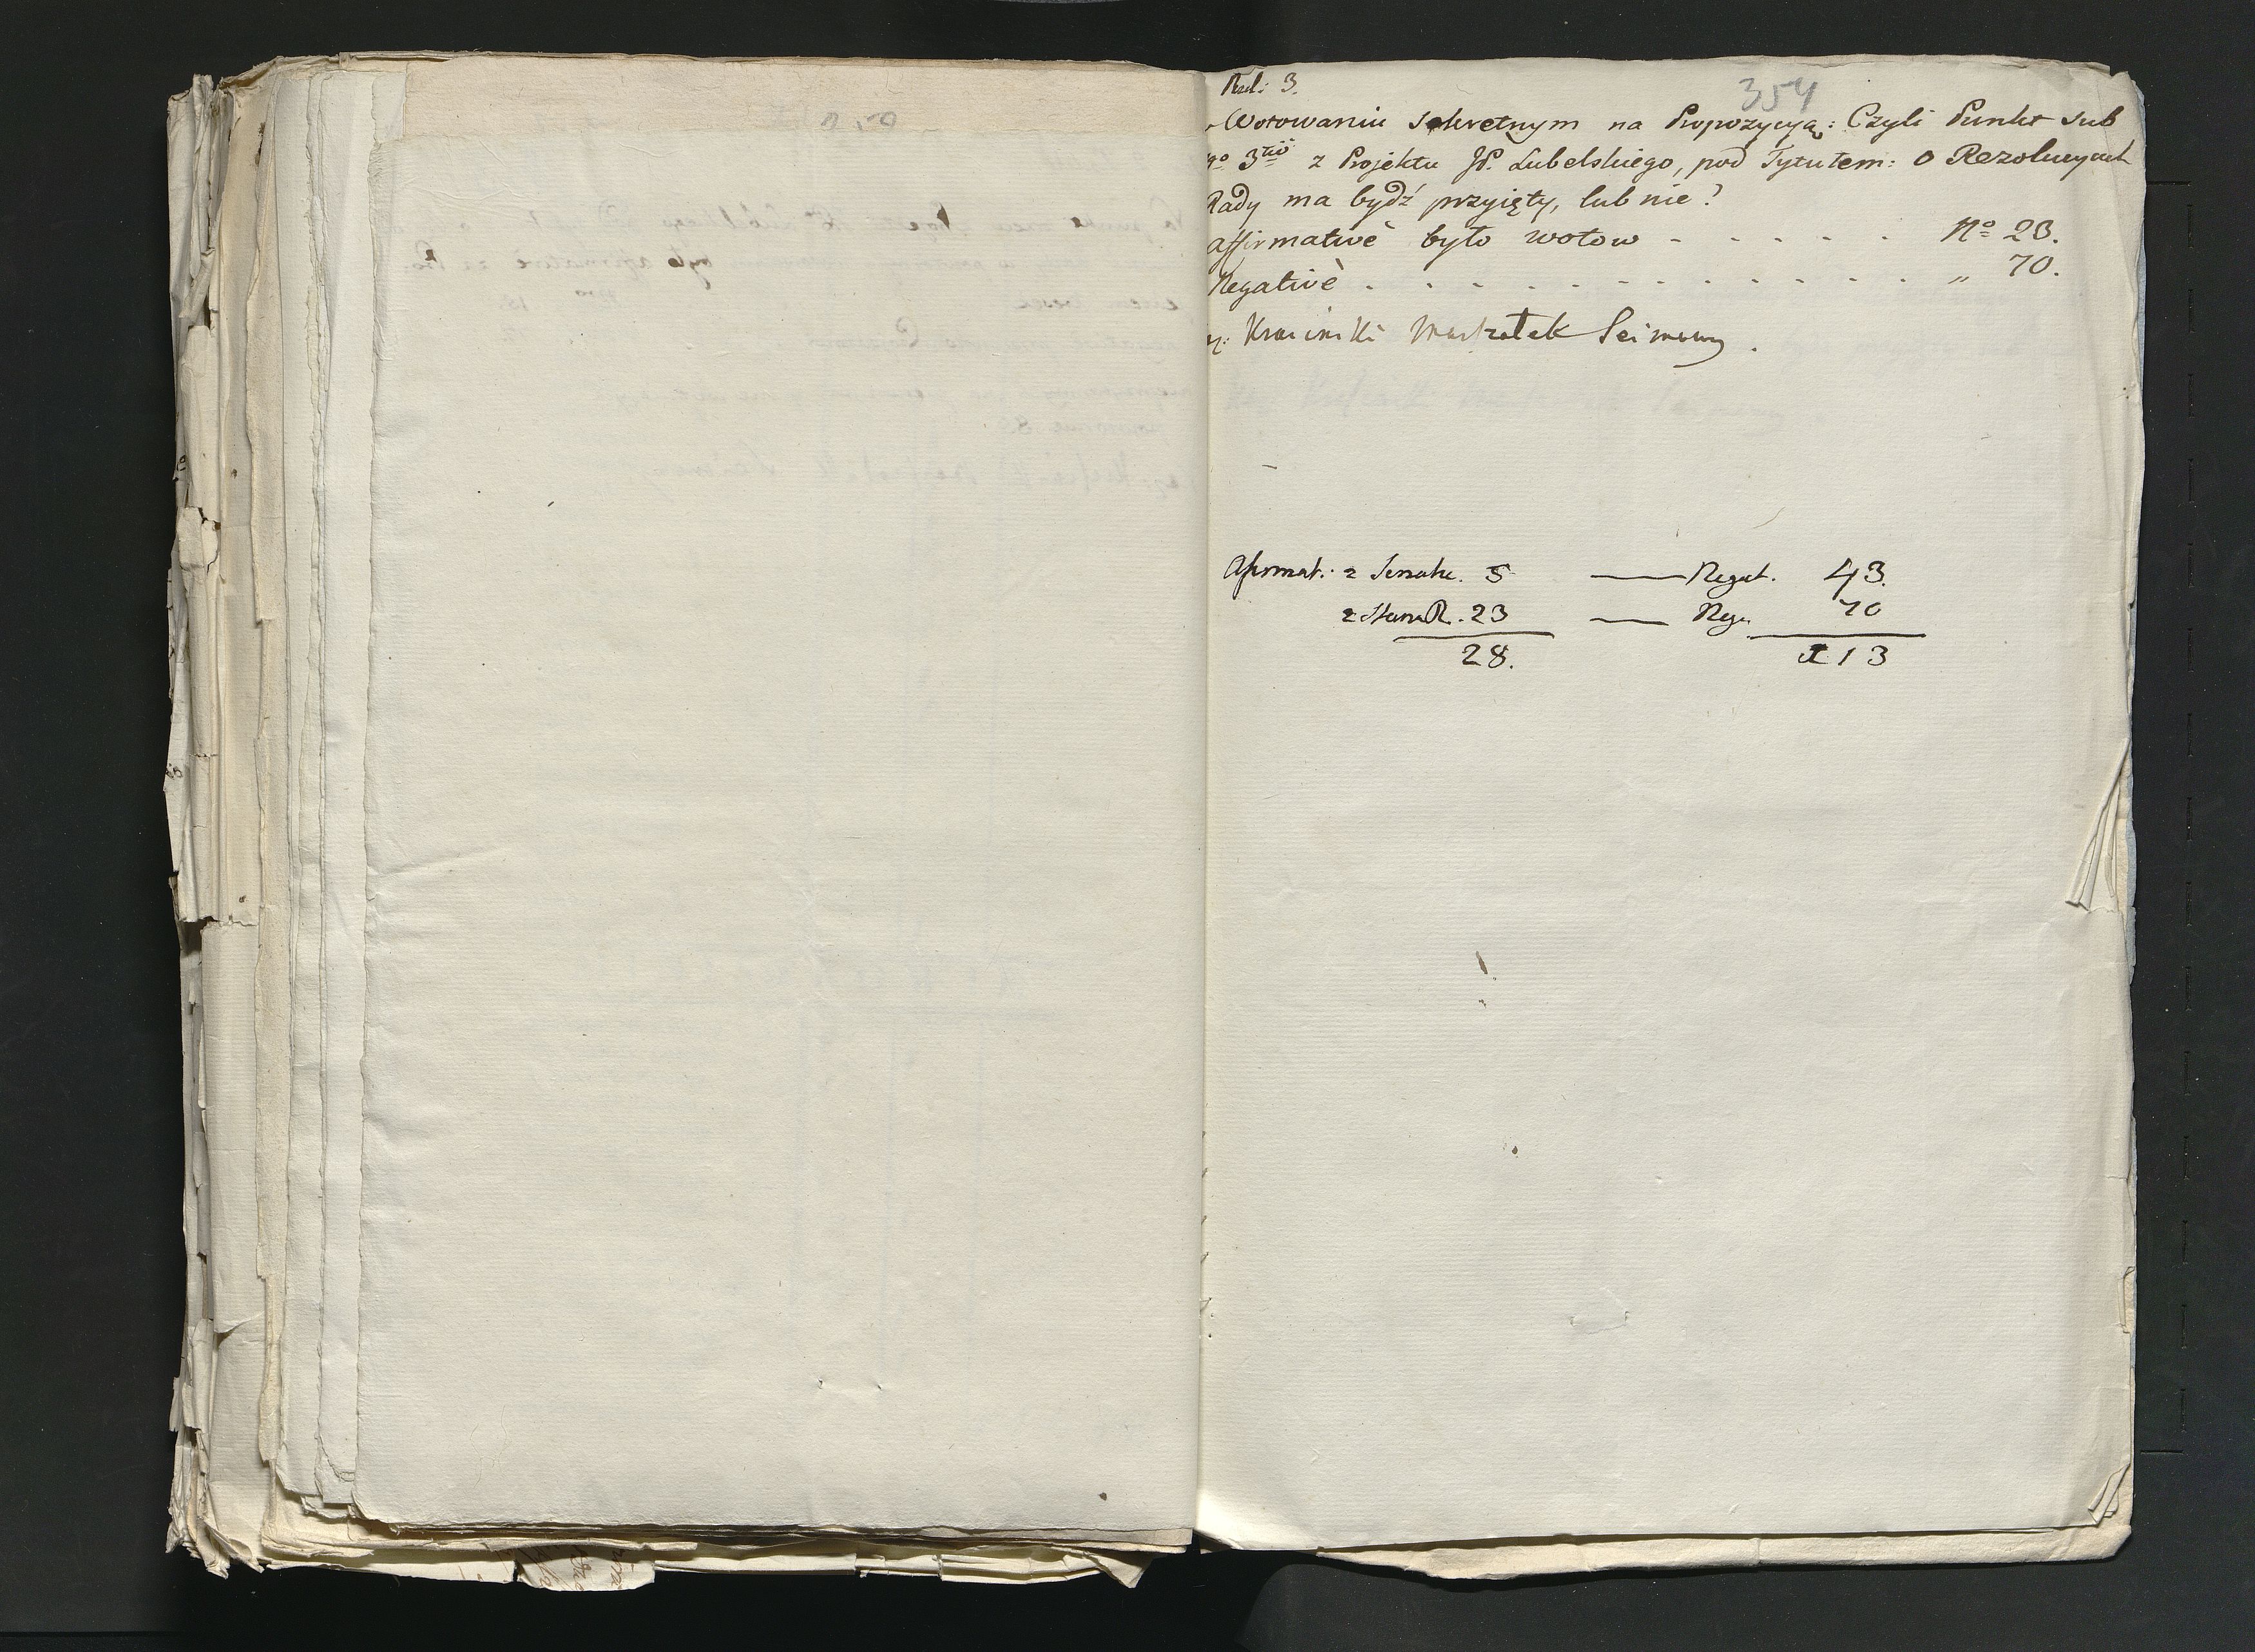 354
3.
Wotowaniu sekretnym na Propozycyą: Czyli Punkt sub
Nº 3tiò z Projektu JP. Lubelskiego, pod Tytułem: O Rezolucyach
Rady ma bydź przyięty, lub nie?
affirmativè było wotow - - - - - Nº 23.
Negativè - - - - - - - - - - „ 70.
Krasinski Marszałek Seimowy.
Afirmat: z Senatu. 5 — Negat. 43.
z Stanu R. 23 — Neg. 70
28. 113